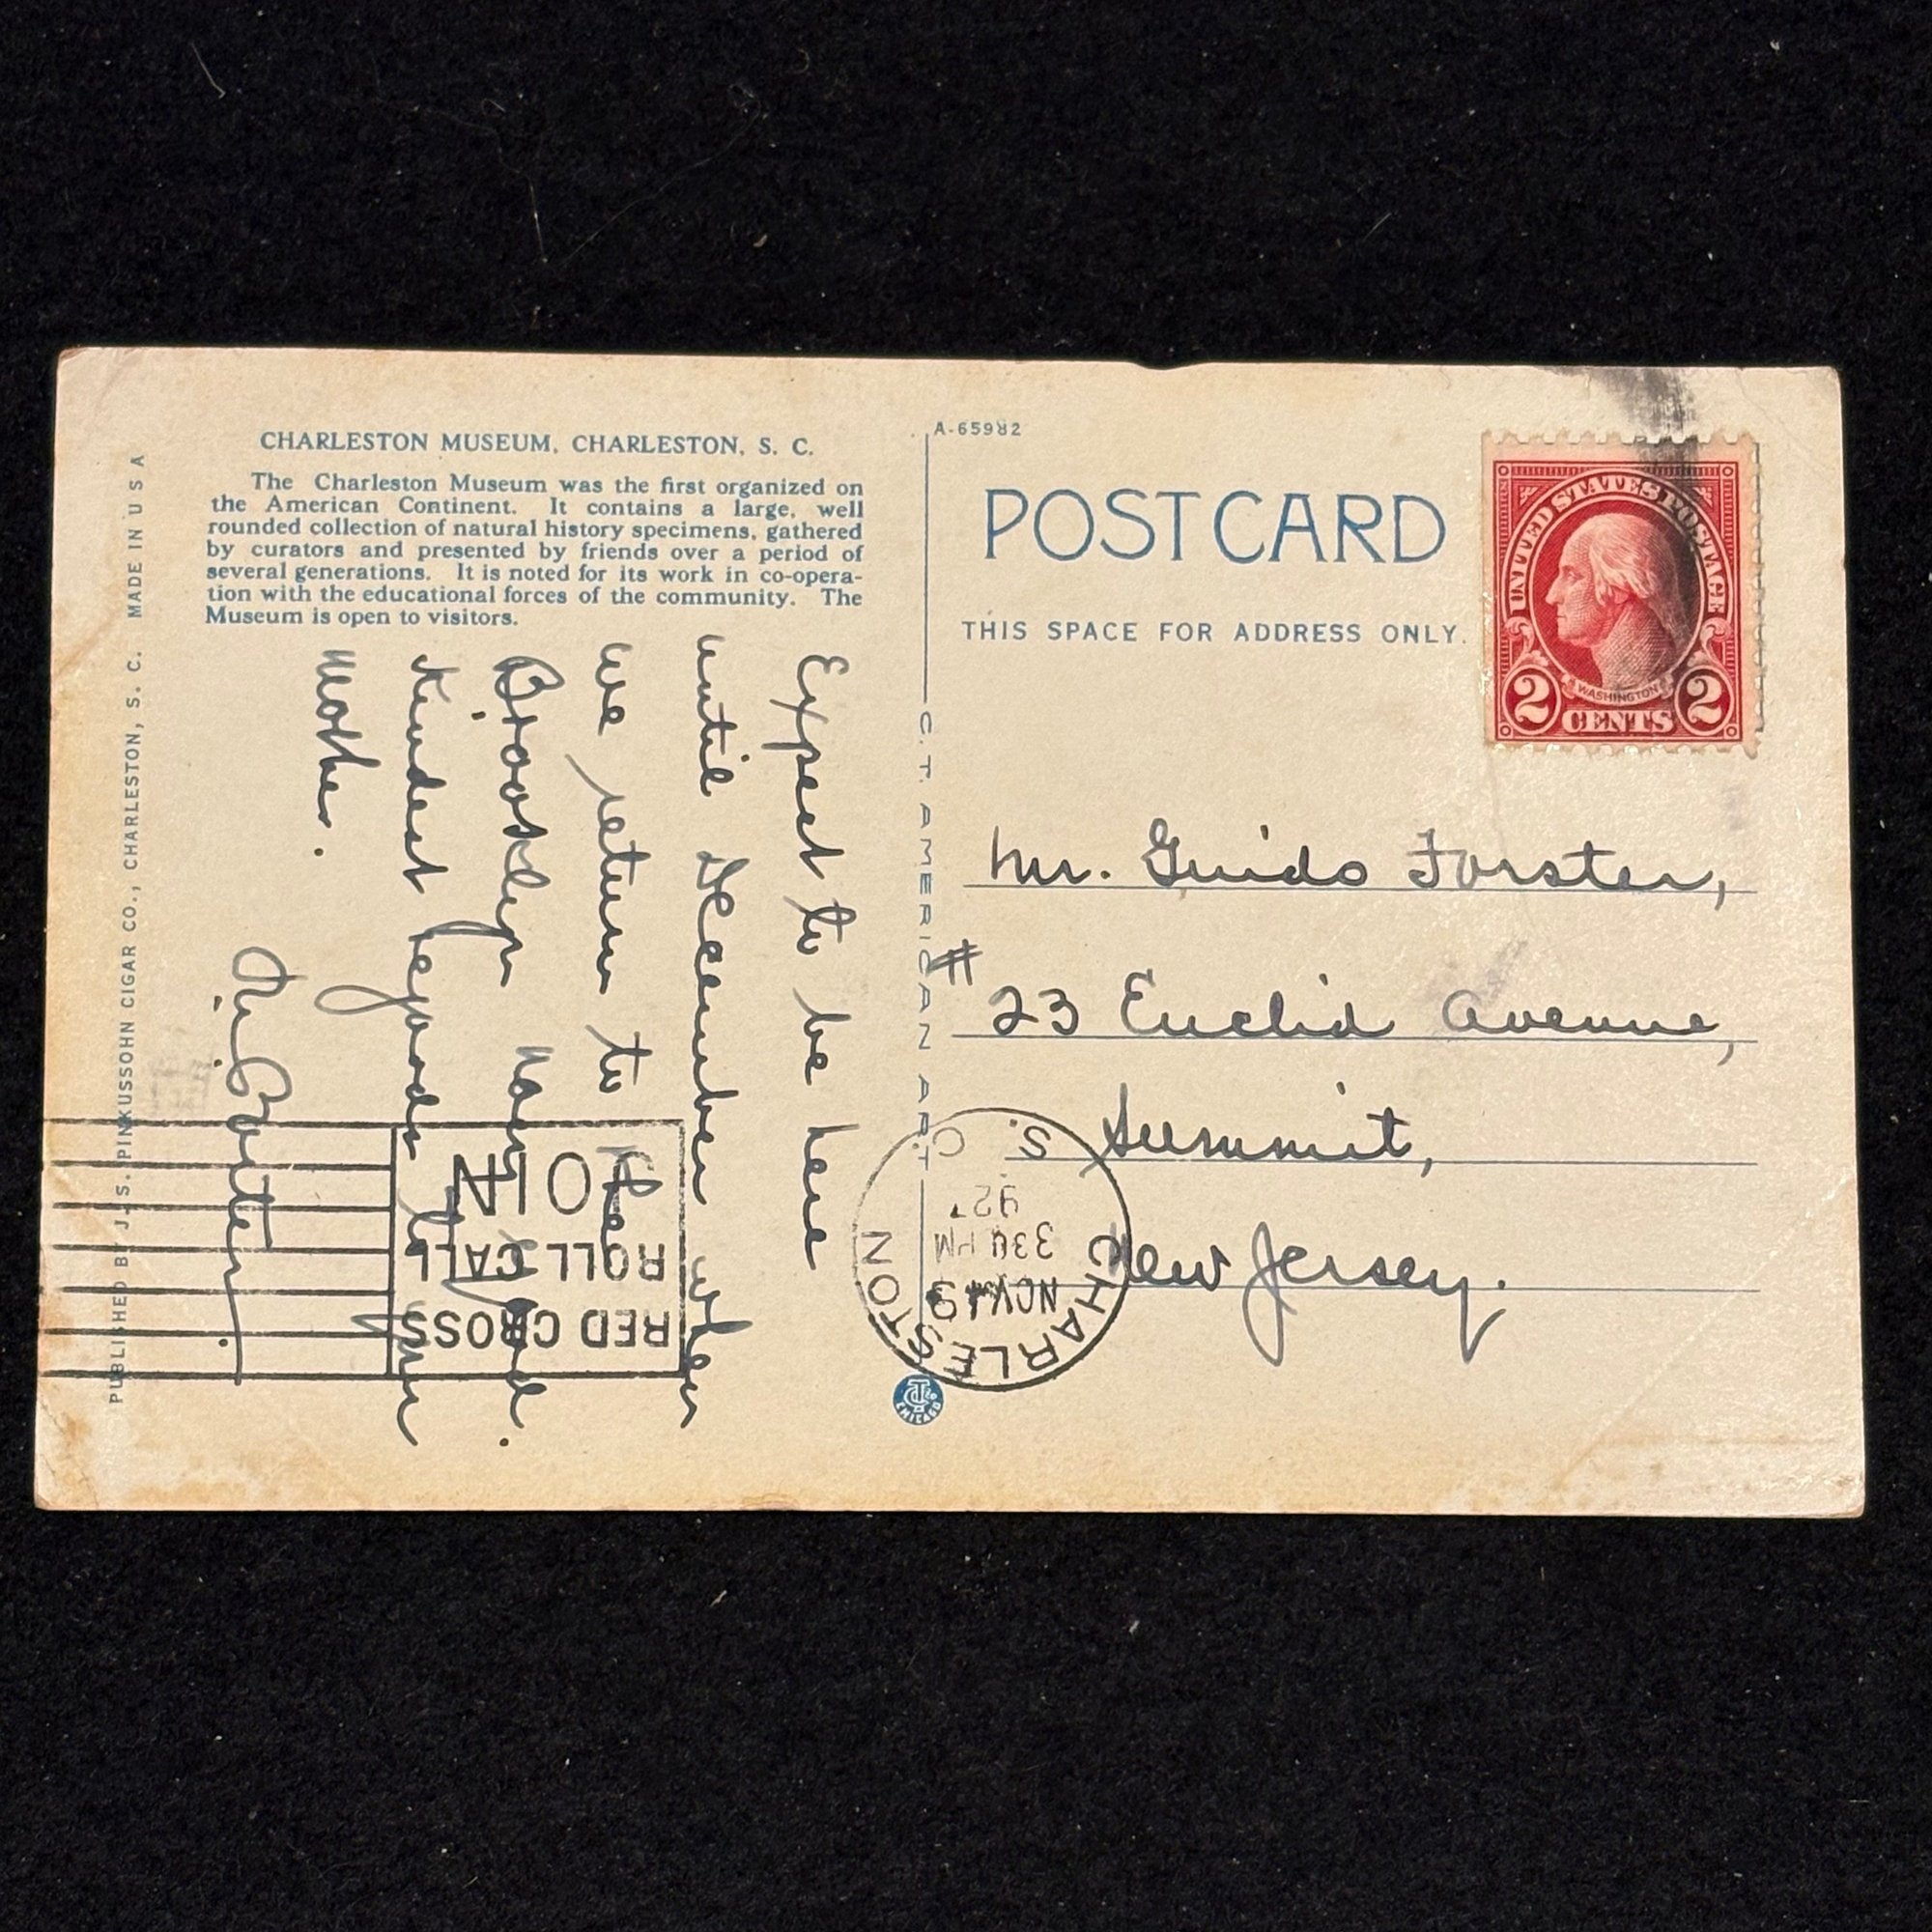 CHARLESTON MUSEUM, CHARLESTON, S. C.
The Charleston Museum was the first organized on
the American Continent. It contains a large, well
rounded collection of natural history specimens, gathered
by curators and presented by friends over a period of
several generations. It is noted for its work in co-opera-
tion with the educational forces of the community. The
Museum is open to visitors.
Expect to be here
until December when
we return to the
Brooklyn Navy Yard.
Kindest regards to your
Mother.
PUBLISHED BY J. S. PINKUSSOHN CIGAR CO., CHARLESTON, S. C. MADE IN U S A
A-65982
POST CARD
THIS SPACE FOR ADDRESS ONLY.
C. T. AMERICAN ART
UNITED STATES POSTAGE
WASHINGTON
2 CENTS 2
Mr. Guido Forster,
# 23 Euclid Avenue,
Summit,
New Jersey.
CHARLESTON
S. C.
NOV
330 PM
RED CROSS
ROLL CALL
CHICAGO